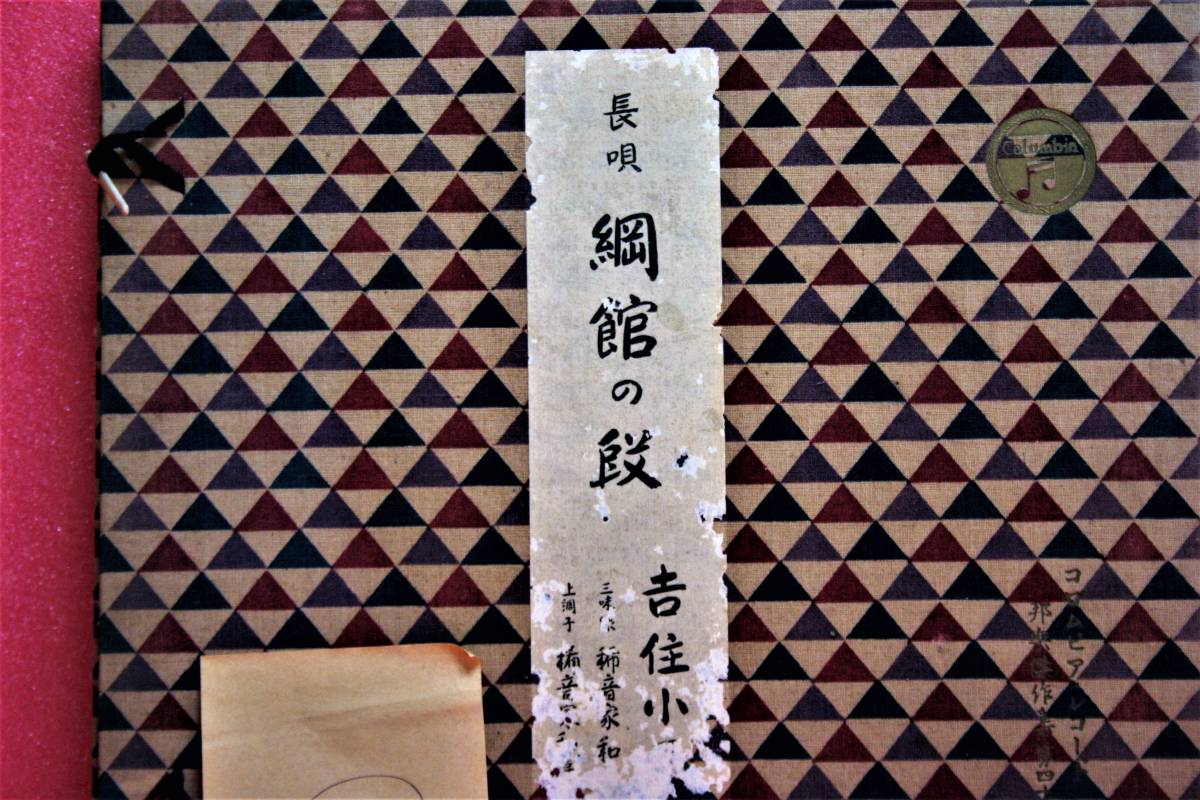 コロムビアレコード
邦楽傑作集 第四
Columbia
長唄
綱館の段
吉住小
三味線 稀音家和
上調子 稀音家